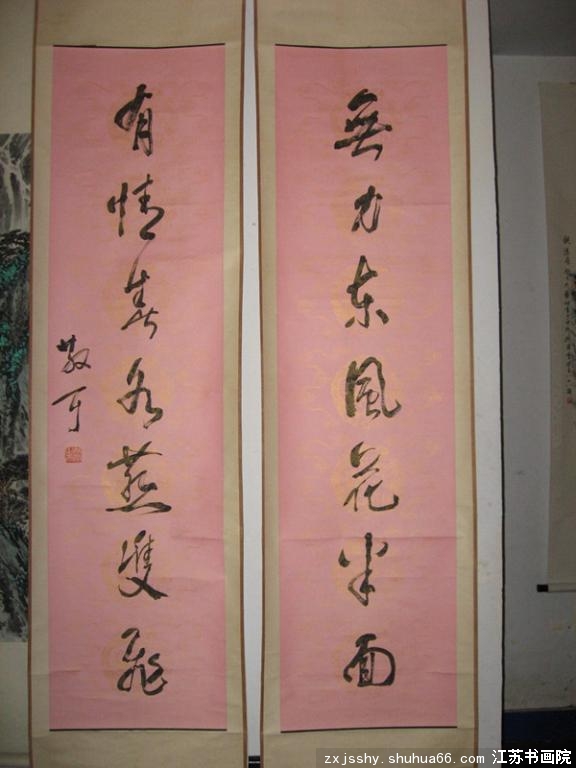 無力東風花半面
有情春水燕雙飛
散耳
zxjsshy.shuhua66.com 江苏书画院